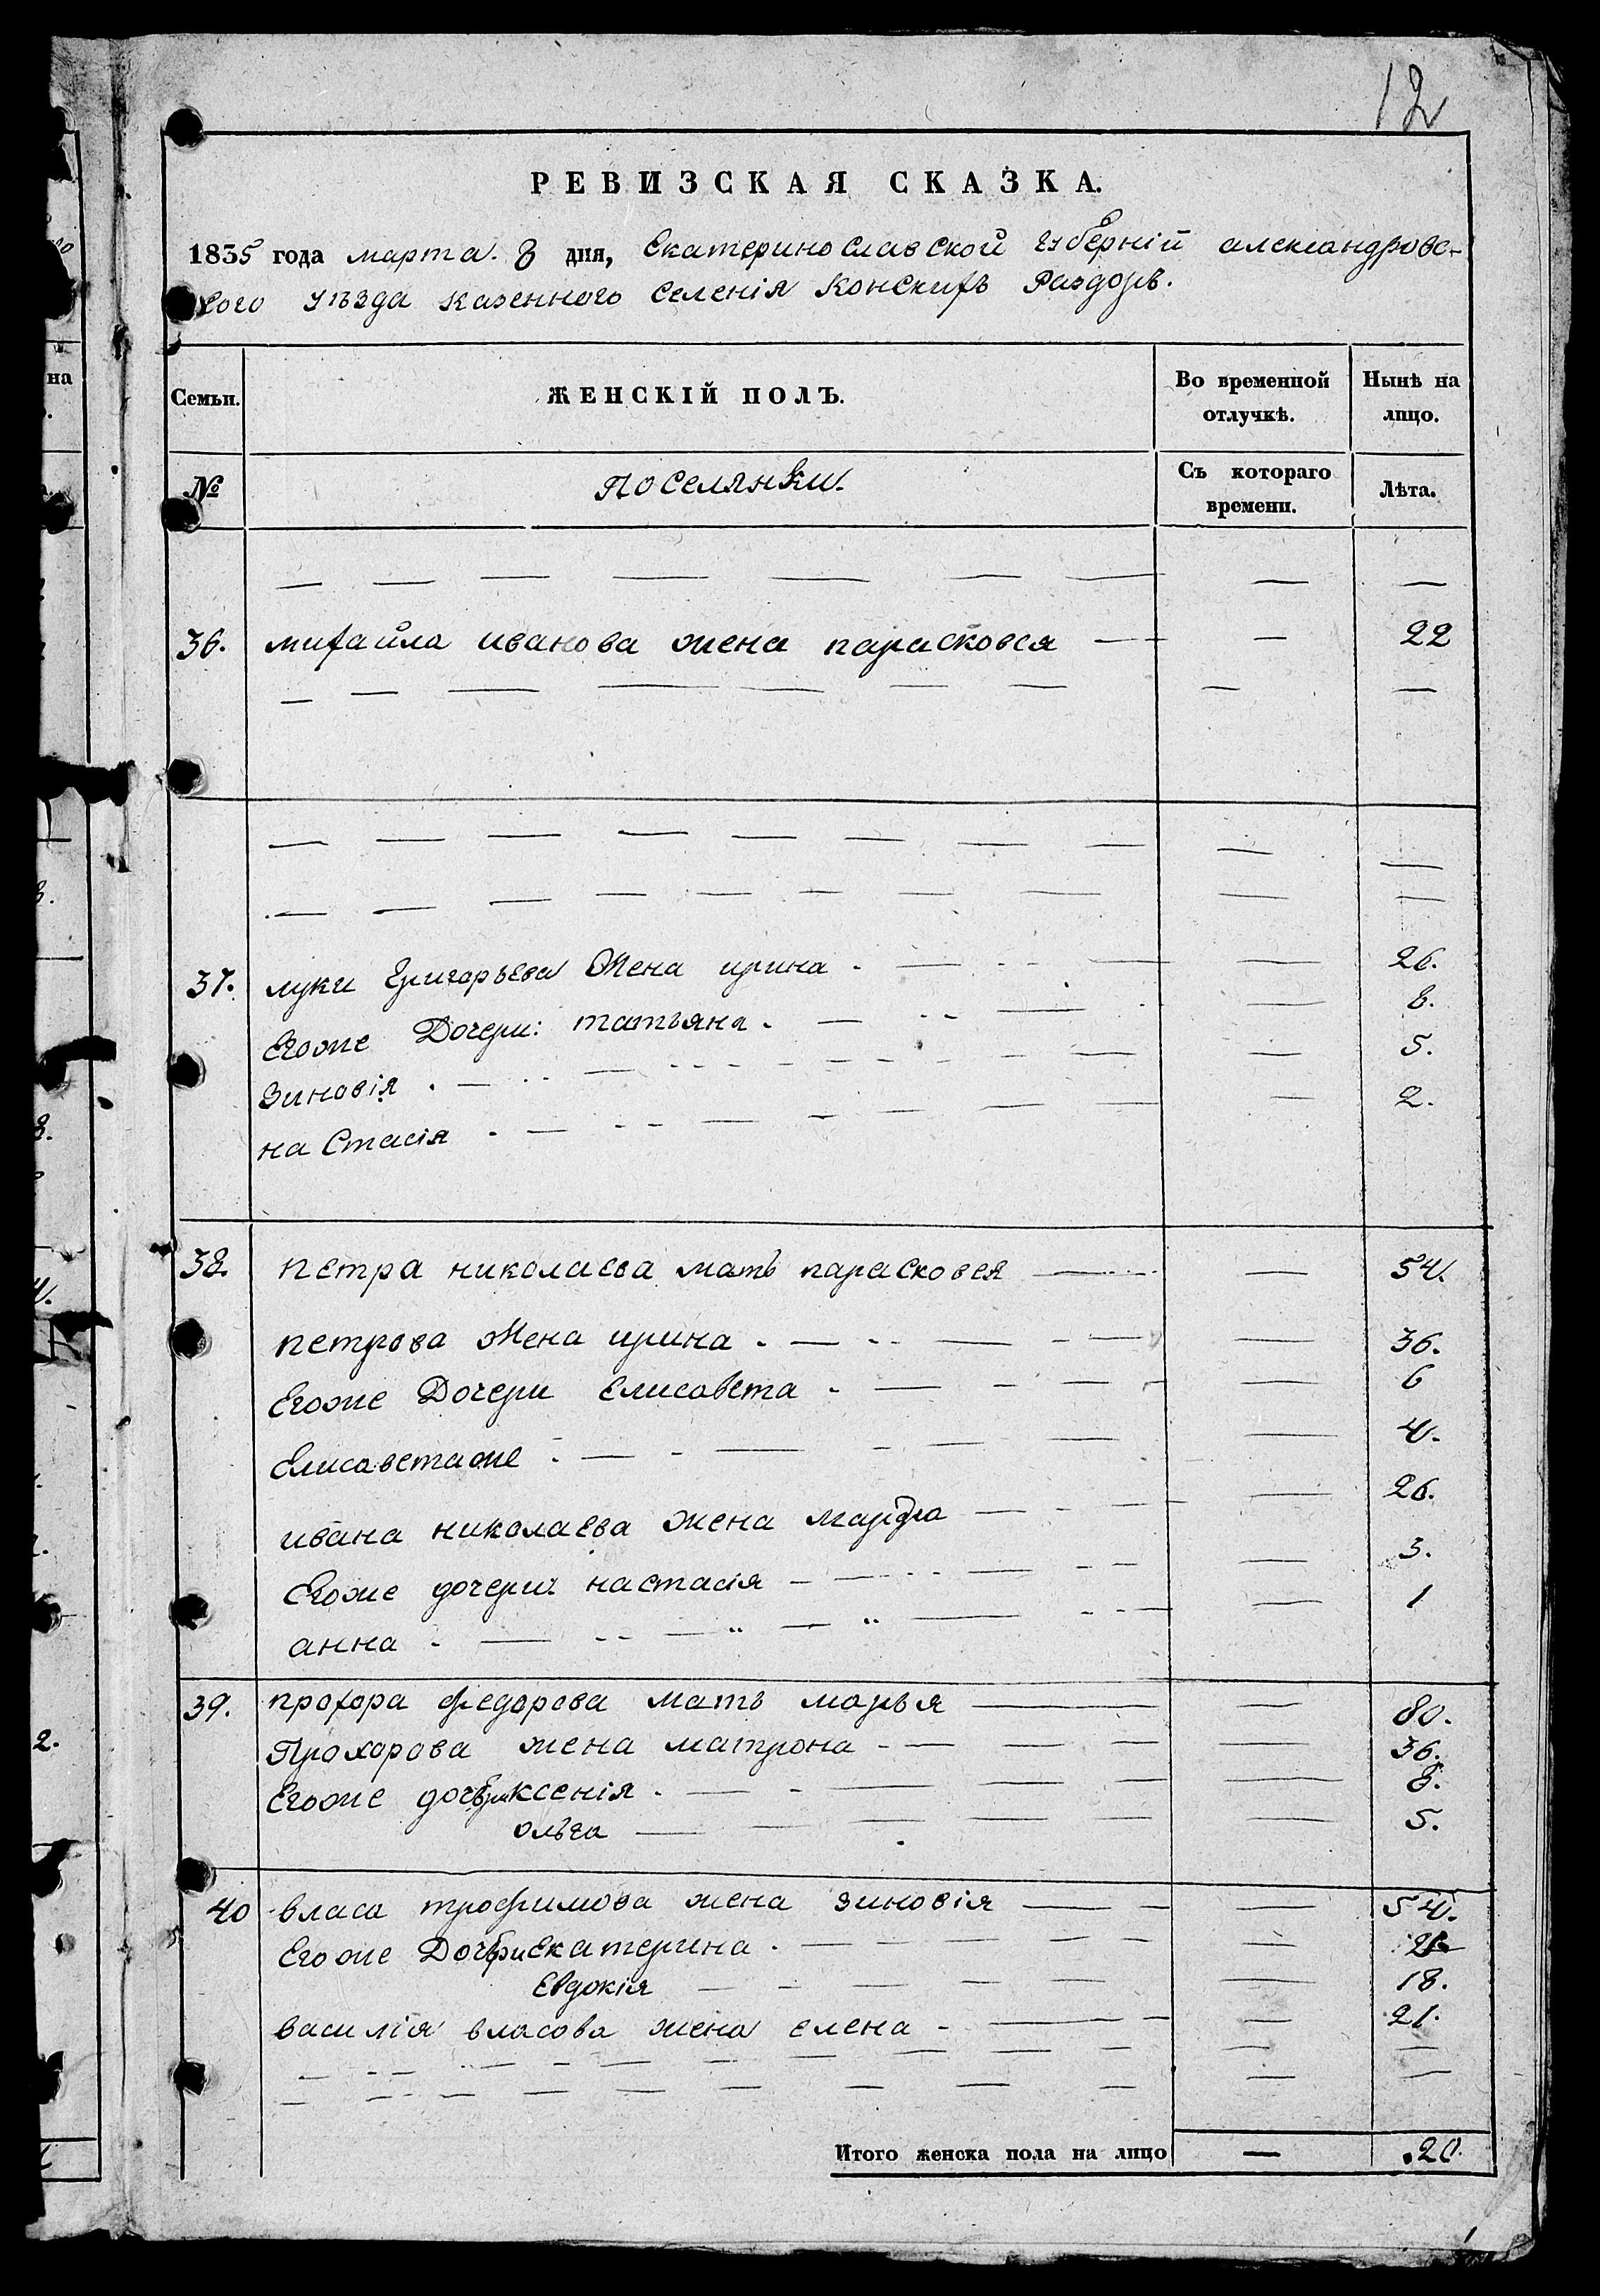 12
РЕВИЗСКАЯ СКАЗКА.
1835 года марта. 8 дня, Екатеринославской губерніи александровс-
кого уѣзда казенного селенія Конскихъ Раздоръ.
Семьи.
ЖЕНСКІЙ ПОЛЪ.
Во временной отлучкѣ.
Нынѣ на лицо.
№
Поселянки.
Съ котораго времени.
Лѣта.
36. михайла иванова жена парасковея — — 22
37. луки Григорьева Жена ирина . — — 26.
Егоже Дочери: татьяна . — — 8.
Зиновія . — — 5.
на Стасія . — — 2.
38. петра николаева мать парасковея — — 54.
петрова Жена ирина . — — 36.
Егоже Дочери Елисавета . — — 6
Елисаветаже . — — 4.
ивана николаева жена марфа — — 26.
Егоже дочери настасія — — 3.
анна . — — 1
39. прохора федорова мать марья — — 80.
Прохорова жена матрона — — 36.
Егоже дочери Ксенія . — — 8.
ольга — — 5.
40 власа трофимова жена зиновія — — 54.
Егоже Дочери Екатерина . — —
Евдокія — — 18.
василія власова жена елена — — 21.
Итого женска пола на лицо — .20.